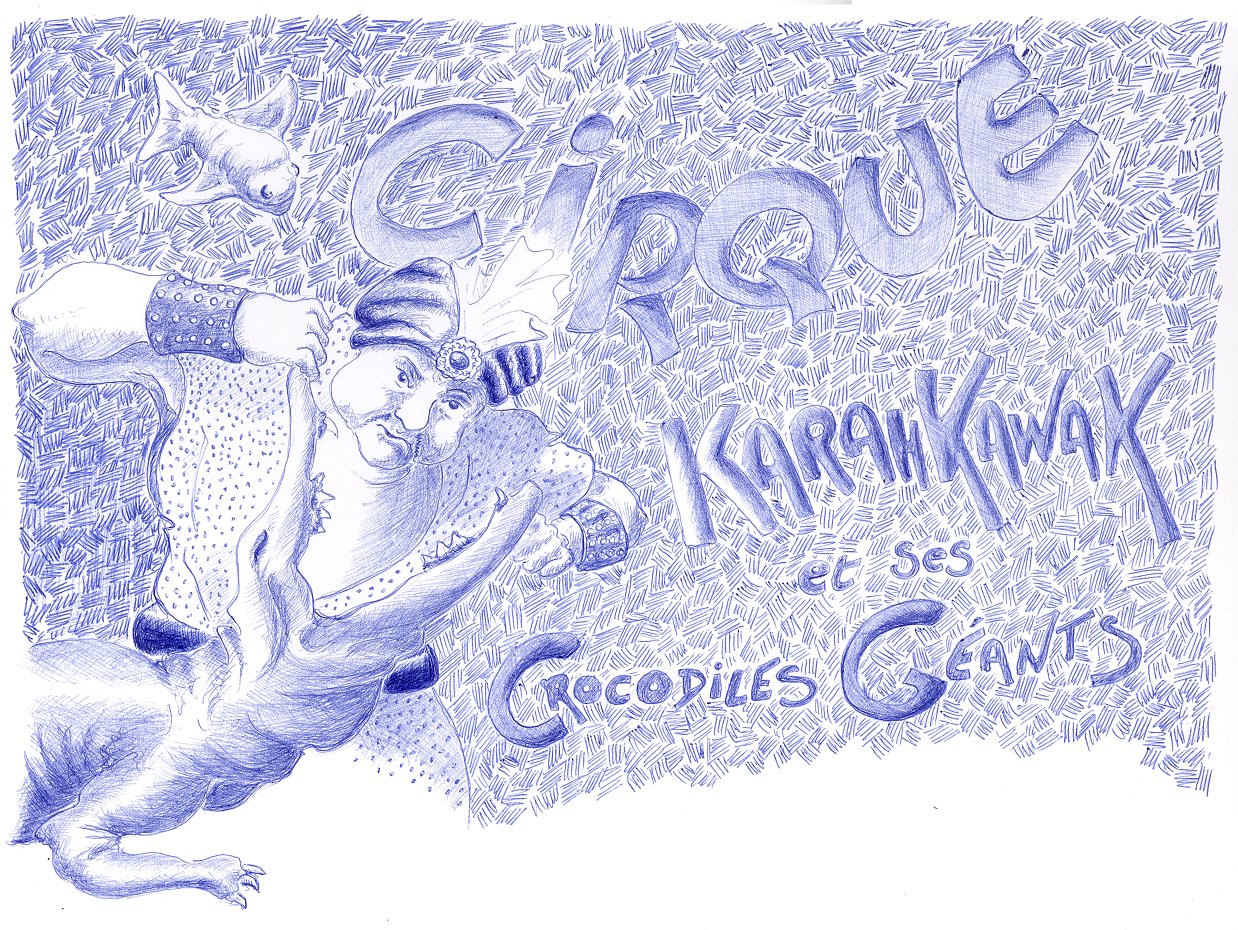 CiRQUE
KARAH KAWAK
et ses
CROCODiLES GÉANTS